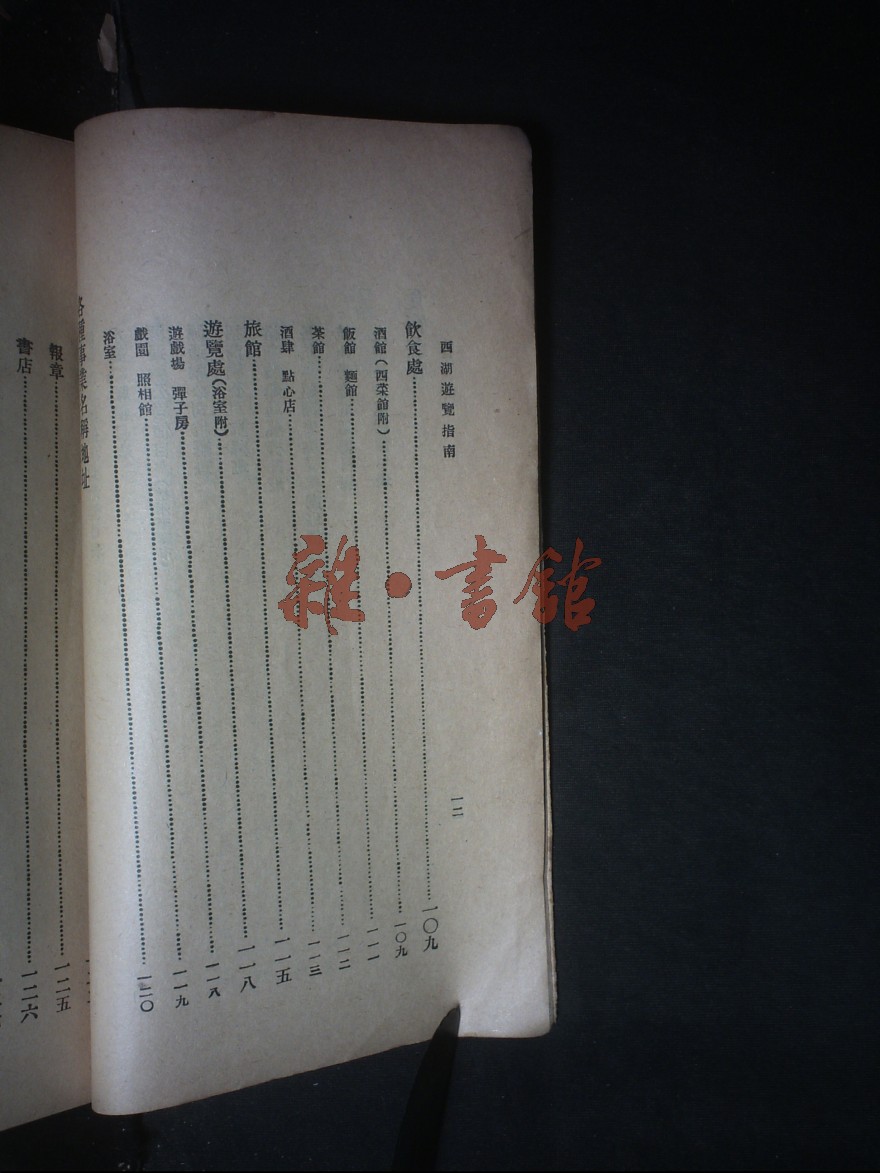 西湖遊覽指南 一二
飲食處……一〇九
酒館(西菜館附)……一〇九
飯館 麵館……一一一
茶館……一一二
酒肆 點心店……一一三
旅館……一一五
遊覽處(浴室附)……一一八
遊戲場 彈子房……一一八
戲園 照相館……一一九
浴室……一二〇
各種事業名稱地址
報章……一二五
書店……一二六
雜·書館